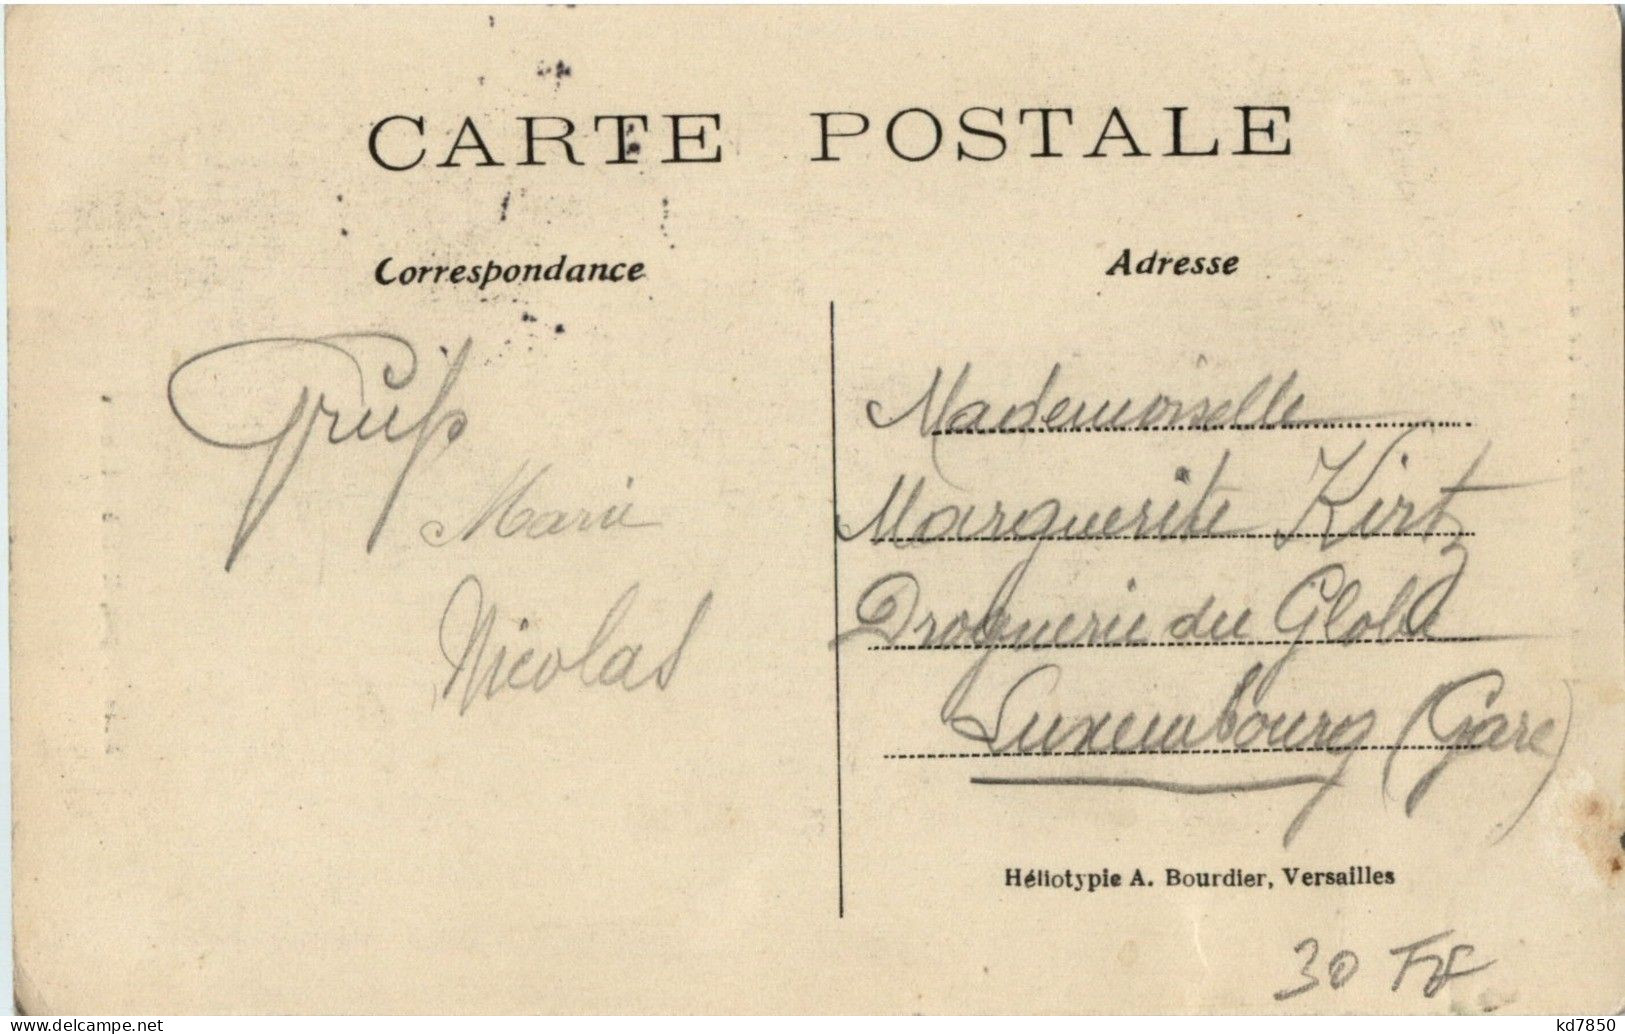 CARTE POSTALE
Correspondance
Gruß
Marie
Nicolas
Adresse
Mademoiselle
Marguerite Kirtz
Droguerie du Globe
Luxembourg (Gare)
Héliotypie A. Bourdier, Versailles
30 FF
delcampe.net
kd7850